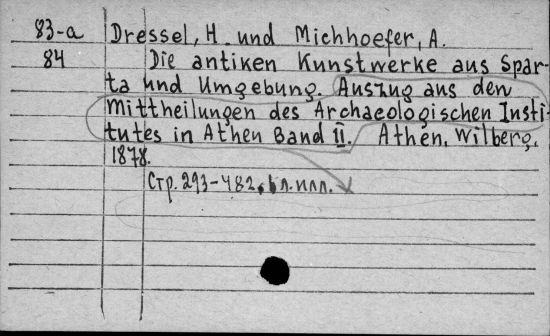 83-a Dressel, H. und Michhoefer, A.
84 Die antiken Kunstwerke aus Spar-
ta und Umgebung. Auszug aus den
Mittheilungen des Archaeologischen Insti-
tutes in Athen Band II. Athen, Wilberg,
1878.
Стр. 293-482, л. илл.